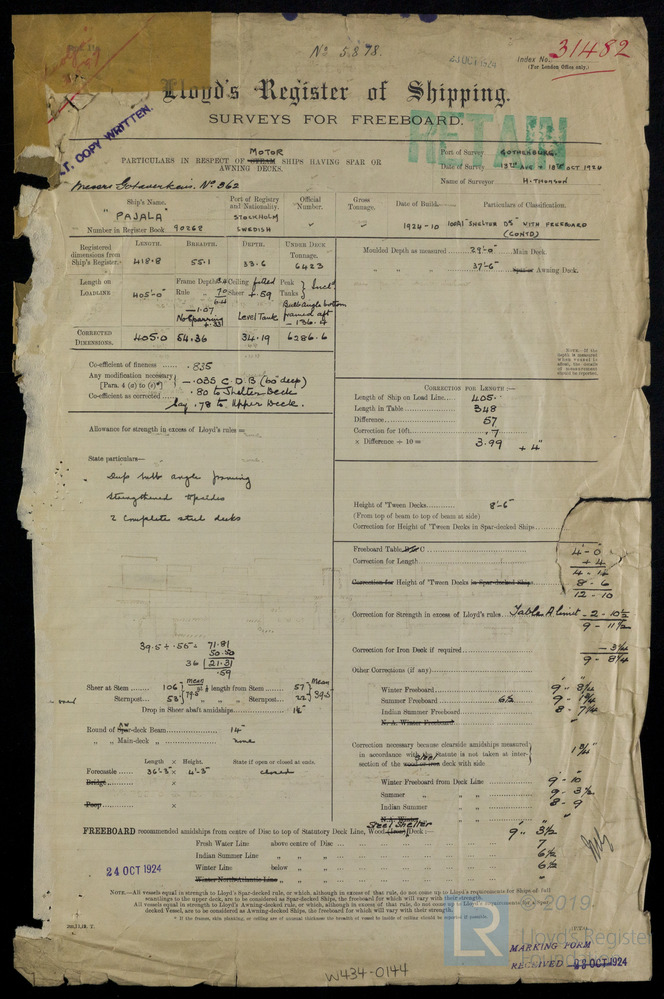 No 5878.
23 OCT 1924
Index No. 31482
(For London Office only.)
Lloyd's Register of Shipping.
SURVEYS FOR FREEBOARD.
RETAIN
COPY WRITTEN.
MOTOR
PARTICULARS IN RESPECT OF STEAM SHIPS HAVING SPAR OR
AWNING DECKS.
Port of Survey GOTHENBURG.
Date of Survey 18TH OCT 1924
Name of Surveyor H. THOMSON
Messrs Gotaverken's. No 362
Ship's Name.
Port of Registry and Nationality.
Official Number.
Gross Tonnage.
Date of Build.
Particulars of Classification.
"PAJALA"
STOCKHOLM
SWEDISH
1924-10
100A1 "SHELTER DK" WITH FREEBOARD
(CONTD)
Number in Register Book 90262
Registered dimensions from Ship's Register.
LENGTH. BREADTH. DEPTH. UNDER DECK Tonnage.
418.8 55.1 33.6 6423
Moulded Depth as measured 29'-0" Main Deck.
" " " 37'-6" Spar or Awning Deck.
Length on LOADLINE 405'-0"
Frame Depth
Rule
Ceiling
Sheer + .59
Peak Tanks
-1.07
No Sparring + .33
Level Tank
Bulb angle bottom
framed aft
- 136.4
CORRECTED DIMENSIONS. 405.0 54.36 34.19 6286.6
Co-efficient of fineness .835
Any modification necessary [Para. 4 (a) to (e)*] -.035 C.D.B (bo deep)
Co-efficient as corrected .80 to Shelter Deck
Say .78 to Upper Deck.
CORRECTION FOR LENGTH :—
Length of Ship on Load Line 405.
Length in Table 348
Difference 57
Correction for 10ft. .7
× Difference ÷ 10 = 3.99 + 4"
Allowance for strength in excess of Lloyd's rules =
State particulars—
Deep bulb angle framing
Strengthened topsides
2 Complete steel decks
Height of 'Tween Decks 8'-6"
(From top of beam to top of beam at side)
Correction for Height of 'Tween Decks in Spar-decked Ships
Freeboard Table C 4-0
Correction for Length + 4
4-4
Correction for Height of 'Tween Decks in Spar-decked Ships 8-6
12-10
Correction for Strength in excess of Lloyd's rules Table A limit - 2-10½
9-11½
Correction for Iron Deck if required - 3¼
9-8¼
Other Corrections (if any)
39.5 + .55 = 71.81
50.50
36 | 21.31
.59
Sheer at Stem 106" mean at ⅛ length from Stem 57" Mean
Sternpost 53" 79.5 " " " Sternpost 22" 39.5
Drop in Sheer abaft amidships
Winter Freeboard 9-8¼
Summer Freeboard 6½ 9-1¾
Indian Summer Freeboard 8-7¼
N. A. Winter Freeboard
Round of Aw Spar-deck Beam 14"
" " Main-deck " none
Length × Height. State if open or closed at ends.
Forecastle 36'-3" × 4'-3" closed
Bridge ×
Poop ×
Correction necessary because clearside amidships measured in accordance with the Statute is not taken at intersection of the steel wood or iron deck with side 1¾"
Winter Freeboard from Deck Line 9-10
Summer " " 9-3½
Indian Summer " " 8-9
N. A. Winter
Steel Shelter
FREEBOARD recommended amidships from centre of Disc to top of Statutory Deck Line, Wood (Iron) Deck :— 9" 3½
Fresh Water Line above centre of Disc 7
Indian Summer Line " " " 6½
Winter Line below " 6½
Winter North Atlantic Line " "
24 OCT 1924
NOTE.—All vessels equal in strength to Lloyd's Spar-decked rule, or which, although in excess of that rule, do not come up to Lloyd's requirements for Ships of full
scantlings to the upper deck, are to be considered as Spar-decked Ships, the freeboard for which will vary with their strength.
All vessels equal in strength to Lloyd's Awning-decked rule, or which, although in excess of that rule, do not come up to Lloyd's requirements for a Spar-
decked Vessel, are to be considered as Awning-decked Ships, the freeboard for which will vary with their strength.
LR
© 2019
Lloyd's Register
Foundation
MARKING FORM
RECEIVED 28 OCT 1924
W434-0144